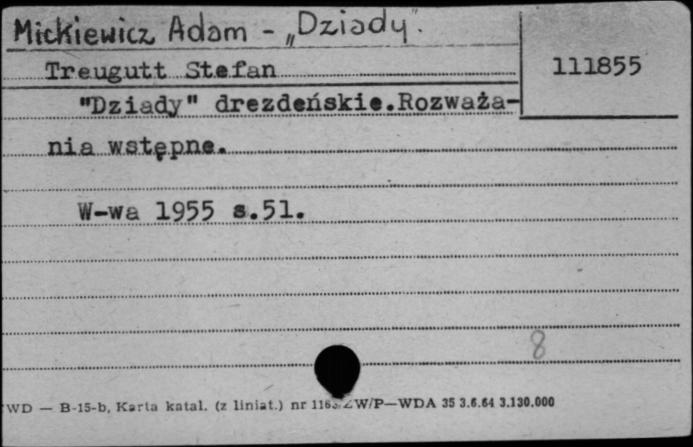 Mickiewicz Adam - „Dziady".
Treugutt Stefan
111855
"Dziady" drezdeńskie.Rozważa-
nia wstępne.
W-wa 1955 s.51.
8
WD — B-15-b, Karta katal. (z liniat.) nr W/P—WDA 35 3.6.64 3.130.000